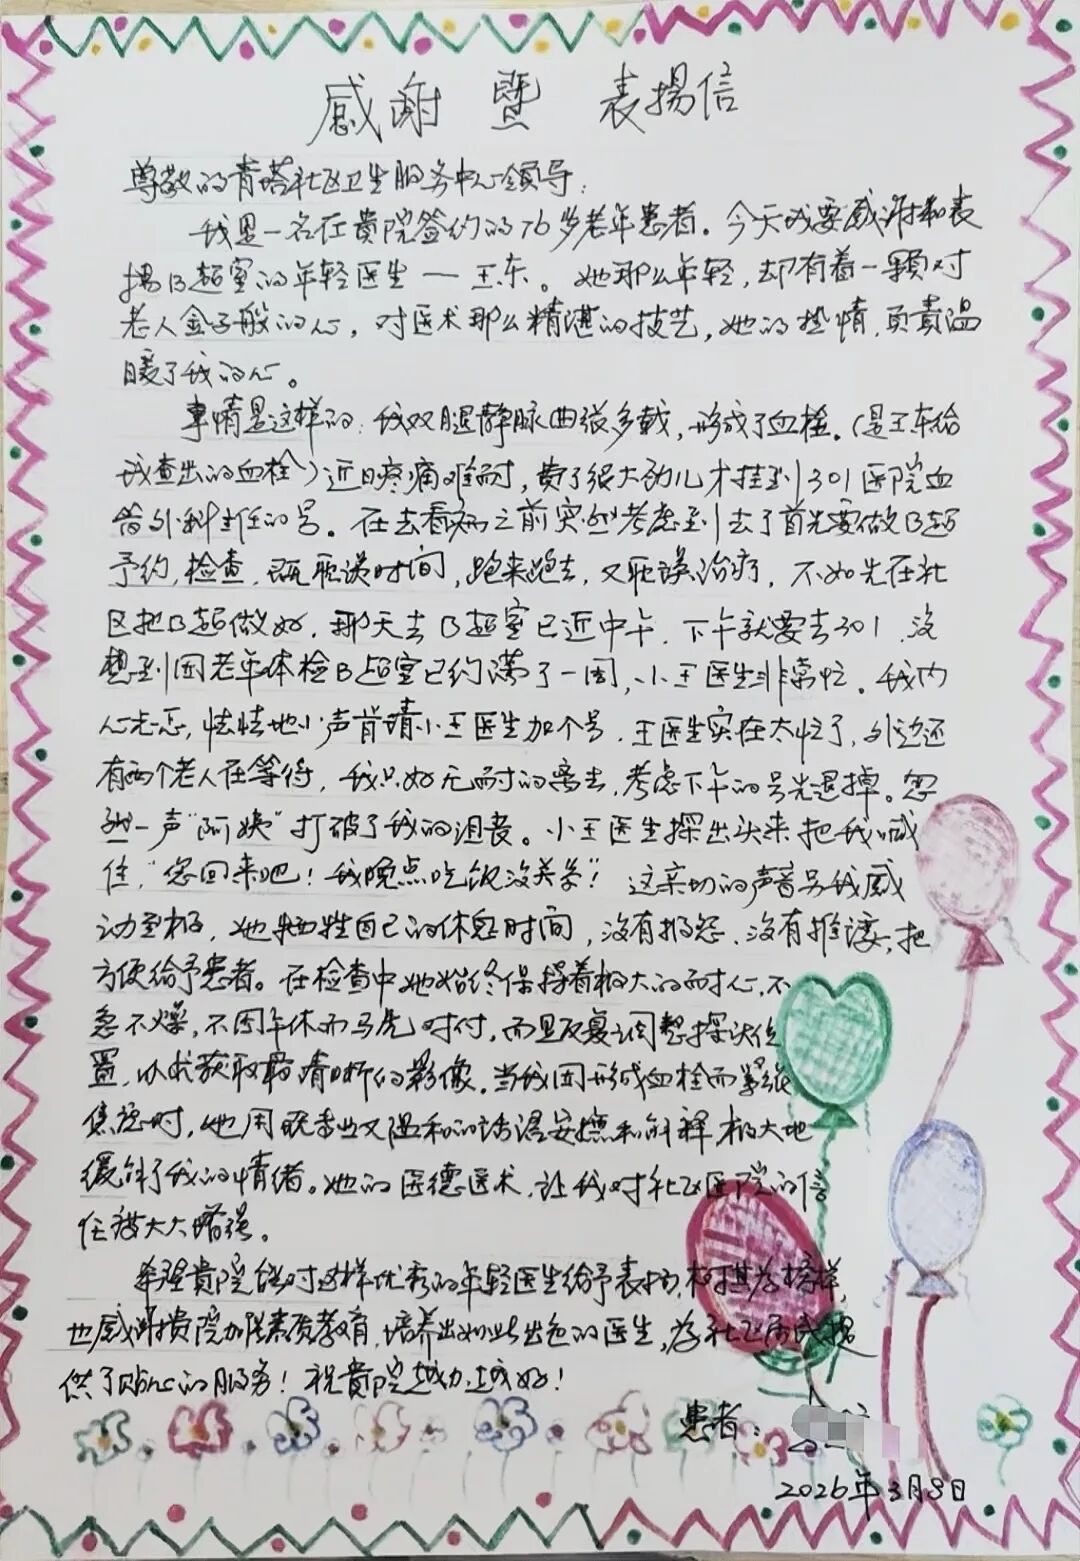 感谢 暨 表揚信
尊敬的青塔社区卫生服务中心领导：
我是一名在貴院签约的76岁老年患者。今天我要感谢和表
揚B超室的年轻医生—王东。她那么年轻，却有着一颗对
老人金子般的心，对医术那么精湛的技艺，她的热情、负责温
暖了我的心。
事情是这样的：我双腿静脉曲张多载，形成了血栓。（是王东给
我查出的血栓）近日疼痛难耐，费了很大劲儿才挂到301医院血
管外科主任的号。在去看病之前突然考虑到去了首先要做B超
予约，检查，既耽误时间，跑来跑去，又耽误治疗，不如先在社
区把B超做好，那天去B超室已近中午，下午就要去301，没
想到因老年体检B超室已约满了一周，小王医生非常忙。我内
心忐忑，怯怯地小声肯请小王医生加个号，王医生实在太忙了，外边还
有两个老人在等待，我只好无耐的离去，考虑下午的号先退掉。忽
然一声“阿姨”打破了我的沮丧。小王医生探出头来把我喊
住，“您回来吧！我晚点吃饭没关学！”这亲切的声音另我感
动至极，她牺牲自己的休息时间，没有抱怨、没有推诿，把
方便给予患者。在检查中她始终保持着极大的耐心，不
急不燥，不因午休而马虎对付，而且反复调整探头位
置，以求获取最清晰的影像。当我因形成血栓而紧张
焦虑时，她用既专业又温和的话语安撫和解释极大地
缓解了我的情绪。她的医德医术，让我对社区医院的信
任被大大增强。
希望貴院能对这样优秀的年轻医生给予表扬，树其为榜样，
也感谢貴院加强素质教育，培养出如此出色的医生，为社区居民提
供了贴心的服务！祝貴院越办越好！
患者：
2026年3月9日